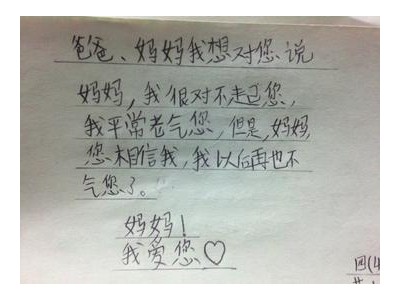 爸爸、妈妈我想对您说
妈妈,我很对不起您,
我平常老气您,但是,妈妈,
您相信我,我以后再也不
气您了。
妈妈!
我爱您♡
四(4